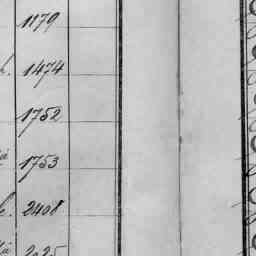 1179
1474
1752
1753
2408
2025